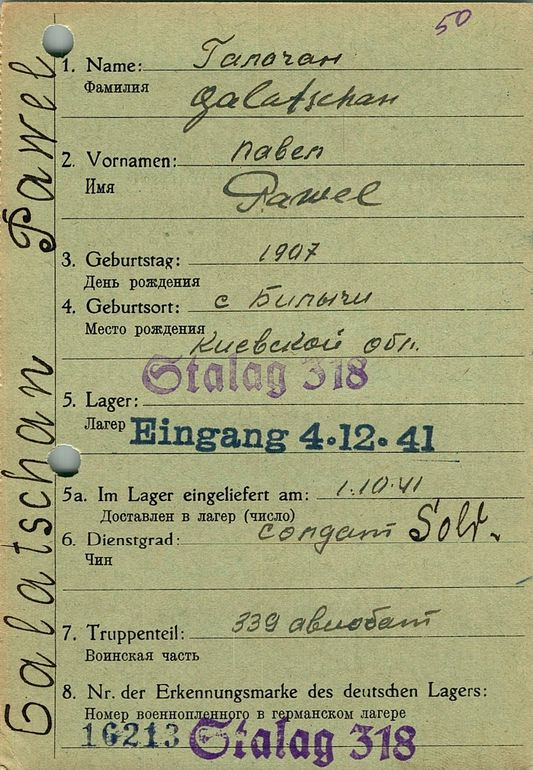 50
1. Name: Галочан
Фамилия
Galatschan
2. Vornamen: павел
Имя
Pawel
3. Geburtstag: 1907
День рождения
4. Geburtsort: с Билычи
Место рождения
Киевской обл.
Stalag 318
5. Lager:
Лагер
Eingang 4.12.41
5a. Im Lager eingeliefert am: 1.10.41
Доставлен в лагер (число)
6. Dienstgrad: солдат Sold.
Чин
7. Truppenteil: 339 авиобат
Воинская часть
8. Nr. der Erkennungsmarke des deutschen Lagers:
Номер военнопленного в германском лагере
16213 Stalag 318
Galatschan Pawel